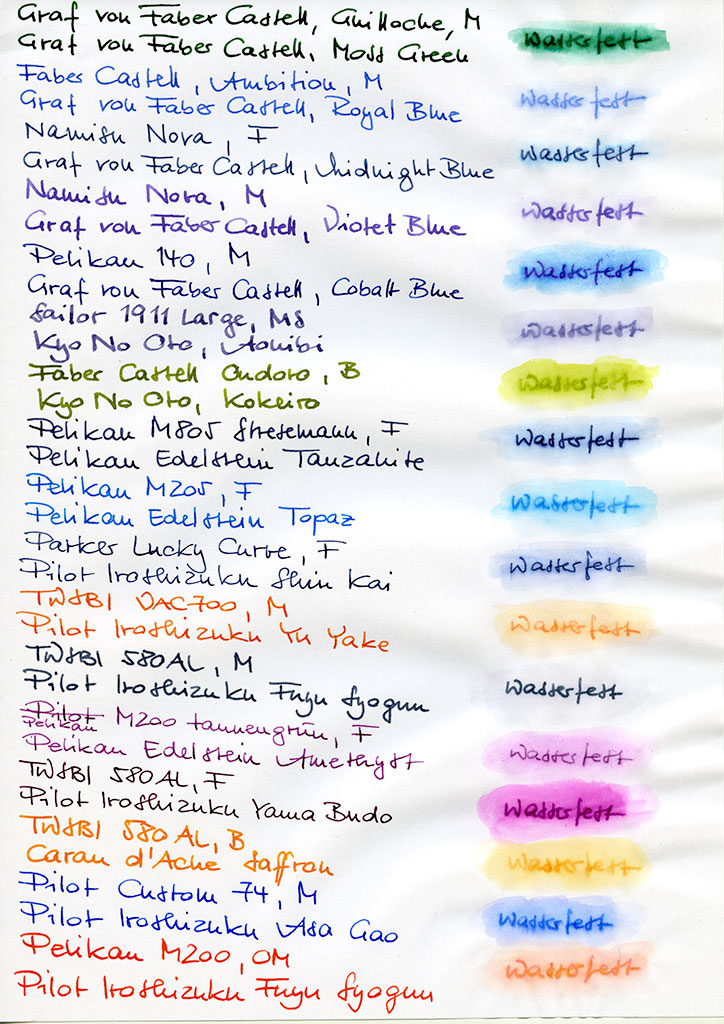 Graf von Faber Castell, Guilloche, M
Graf von Faber Castell, Moss Green
Wasserfest
Faber Castell, Ambition, M
Graf von Faber Castell, Royal Blue
Wasserfest
Namisu Nova, F
Graf von Faber Castell, Midnight Blue
Wasserfest
Namisu Nova, M
Graf von Faber Castell, Violet Blue
Wasserfest
Pelikan 140, M
Graf von Faber Castell, Cobalt Blue
Wasserfest
Sailor 1911 Large, MS
Kyo No Oto, Aonibi
Wasserfest
Faber Castell Ondoro, B
Kyo No Oto, Kokeiro
Wasserfest
Pelikan M805 Stresemann, F
Pelikan Edelstein Tanzanite
Wasserfest
Pelikan M205, F
Pelikan Edelstein Topaz
Wasserfest
Parker Lucky Curve, F
Pilot Iroshizuku Shin Kai
Wasserfest
TWSBI VAC700, M
Pilot Iroshizuku Yu Yake
Wasserfest
TWSBI 580AL, M
Pilot Iroshizuku Fuyu Syogun
Wasserfest
Pilot M200 tannengrün, F
Pelikan
Pelikan Edelstein Amethyst
Wasserfest
TWSBI 580AL, F
Pilot Iroshizuku Yama Budo
Wasserfest
TWSBI 580 AL, B
Caran d'Ache Saffron
Wasserfest
Pilot Custom 74, M
Pilot Iroshizuku Asa Gao
Wasserfest
Pelikan M200, OM
Pilot Iroshizuku Fuyu Syogun
Wasserfest